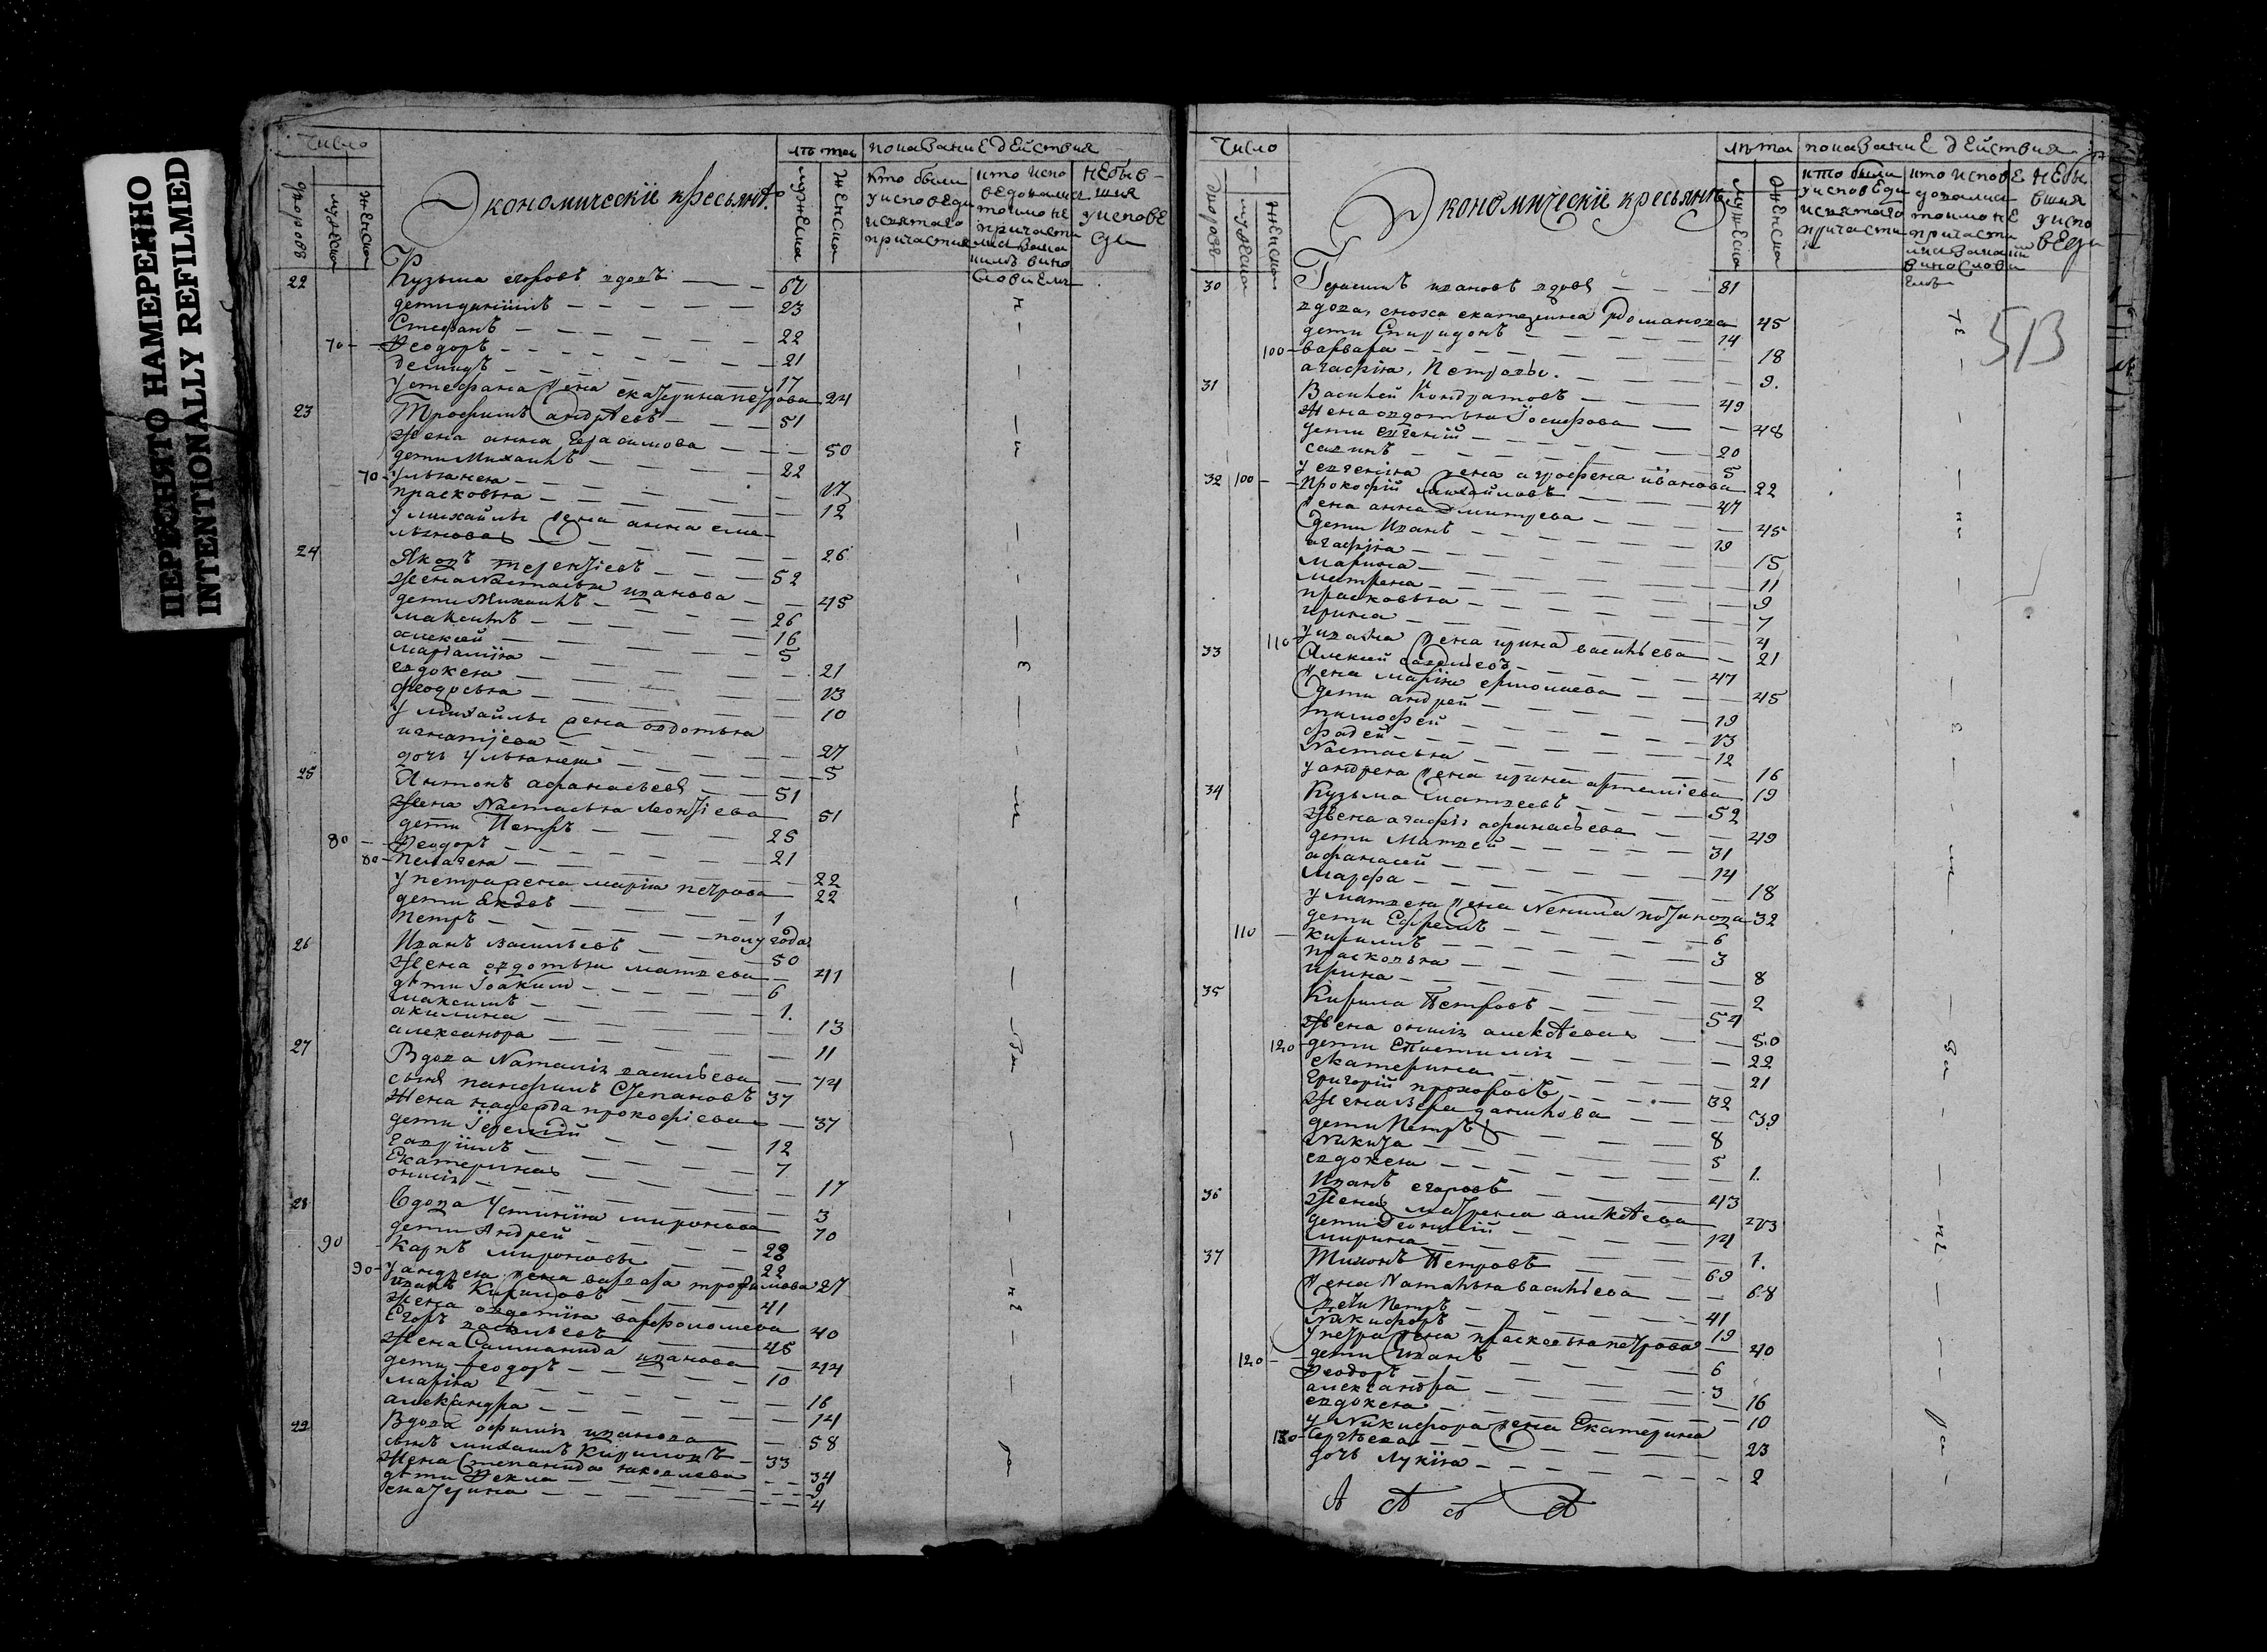 ПЕРЕСНЯТО НАМЕРЕННО
INTENTIONALLY REFILMED
Число
лѣта
показание действия
дворовъ
мужеска
женска
Экономическіе кресьянѣ
мужеска
женска
кто были
у исповеди
и святаго
причастия
кто испо
ведовались
токмо не
причасти
лись
небыв
шия
у испове
ди
22 Кузьма егоровъ вдовъ 67
дети даніилъ 23
Стефанъ 22
70 Феодоръ 21
демидъ 17
у стефана жена екатерина петрова 24
23 Трофимъ андреевъ 51
Жена анна герасимова 50
дети Михаилъ 22
70 ульянея 17
прасковья 12
у михайлы жена анна еме-
льянова 26
24 Яковъ терентіевъ 52
Жена Настасья иванова 45
дети Михаилъ 26
максимъ 16
алексей 5
маріамія 21
евдокея 13
феодосья 10
у михайлы жена овдотья
игнатіева 27
дочь ульянея 5
25 Антонъ афанасьевъ 51
Жена Настасья леонтіева 51
дети Петръ 25
80 Феодоръ 21
80 пелагея 22
у петра жена марія петрова 22
дети 1
петръ полугода
26 Иванъ васильевъ 50
Жена овдотья матвеева 41
дѣти Іоакимъ 6
максимъ 1.
акилина 13
александра 11
27 Вдова Наталія васильева 74
сынъ панфилъ Степановъ 37
Жена надежда прокофіева 37
дети Іеремій 12
гавріилъ 7
Екатерина 17
онисія 3
28 Вдова Устинія миронова 70
дети Андрей 28
90 карпъ мироновы 22
90 у андрея жена варвара трофимова 27
иванъ Кириловъ 41
Жена овдотія варфоломеева 40
Егоръ васильевъ 45
Жена Саломанида иванова 44
дети феодоръ 10
марія 16
александра 14
29 Вдова офимія иванова 58
сынъ михаилъ Кириловъ 33
Жена Степанида яковлева 34
дѣти Фекла 9
екатерина 4
Число
лѣта
показание действия
дворовъ
мужеска
женска
Экономическіе кресьянѣ
мужеска
женска
кто были
у исповеди
и святаго
причасти
я
кто испове
довались
токмо не
причасти
небы
вшия
у испо
веди
513
30 Герасимъ ивановъ вдовъ 81
вдова, сноха екатерина романова 45
дети Спиридонъ 14
100 варвара 18
агафія, Петровы. 9.
31 Василей Кондратовъ 49
Жена овдотья Іосифова 48
дети евгеній 20
савинъ 5
у евгенія жена аграфена іванова 22
32 100 Прокофій михайловъ 47
жена анна дмитріева 45
дети Иванъ 19
агафія 15
марина 11
матрена 9
прасковья 7
ирина 4
110 у ивана жена ирина васильева 21
33 Алексей савельевъ 47
жена марія ермолаева 45
дети андрей 19
тимофей 13
фадей 12
Настасья 16
у андрея жена ирина артеміева 19
34 Кузьма матвеевъ 52
Жена агафія афанасьева 49
дети Матвей 31
афанасей 14
Марфа 18
у матвея жена Ненила потапова 32
дети Ефремъ 6
110 кирилъ 3
прасковья 8
ирина 2
35 Кирила Петровъ 54
Жена онисія алексѣева 50
120 дети епистимія 22
екатерина 21
григорій прохоровъ 32
Жена вера данилова 39
дети Петръ 8
Никита 5
евдокея 1.
36 Иванъ егоровъ 43
Жена матрена алексѣева
дети Деонисій 14
Ирина 1.
37 Тихонъ Петровъ 69
жена Наталья васильева 68
дети Петръ 41
Никифоръ 19
у петра жена прасковья петрова 40
120 дети Иванъ 6
Феодоръ 3
александра 16
евдокея 10
у Никифора жена Екатерина
130 Сергѣева 23
дочь Лукія 2